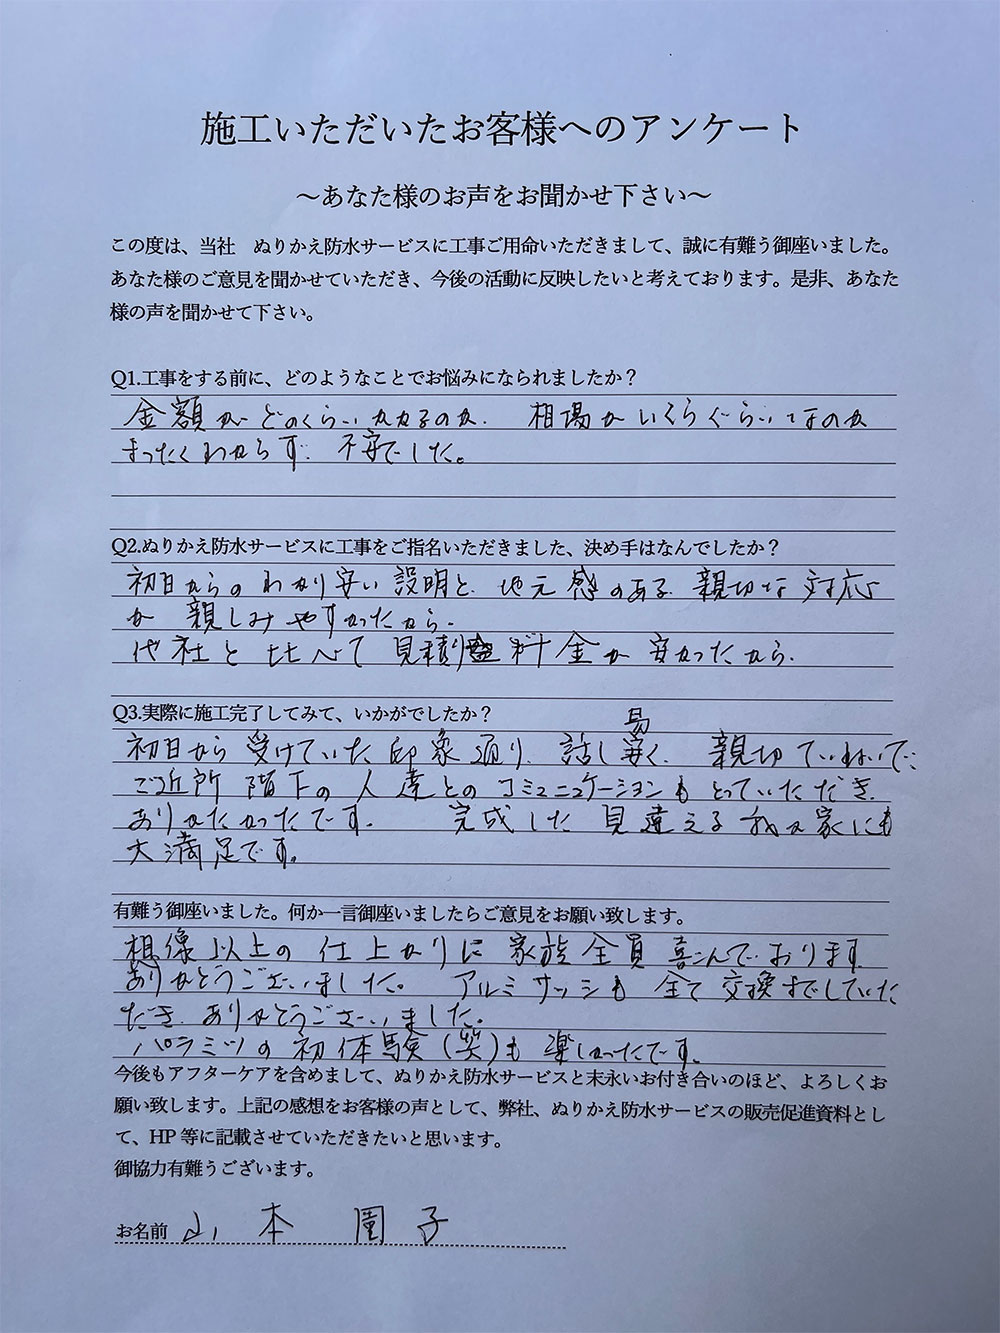 施工いただいたお客様へのアンケート
～あなた様のお声をお聞かせ下さい～
この度は、当社　ぬりかえ防水サービスに工事ご用命いただきまして、誠に有難う御座いました。
あなた様のご意見を聞かせていただき、今後の活動に反映したいと考えております。是非、あなた
様の声を聞かせて下さい。
Q1.工事をする前に、どのようなことでお悩みになられましたか？
金額がどのくらいかかるのか、相場がいくらぐらいなのか
まったくわからず、不安でした。
Q2.ぬりかえ防水サービスに工事をご指名いただきました、決め手はなんでしたか？
初日からのわかり安い説明と、地元感のある、親切な対応
が親しみやすかったから。
他社と比べて見積り料金が安かったから。
Q3.実際に施工完了してみて、いかがでしたか？
初日から受けていた印象通り、話し易く、親切ていねいで、
ご近所階下の人達とのコミュニュケーションもとっていただき、
ありがたかったです。完成した見違える我が家にも
大満足です。
有難う御座いました。何か一言御座いましたらご意見をお願い致します。
想像以上の仕上がりに家族全員喜こんでおります。
ありがとうございました。アルミサッシも全て交換までしていた
だき、ありがとうございました。
パラミツの初体験（笑）も楽しかったです。
今後もアフターケアを含めまして、ぬりかえ防水サービスと末永いお付き合いのほど、よろしくお
願い致します。上記の感想をお客様の声として、弊社、ぬりかえ防水サービスの販売促進資料とし
て、HP 等に記載させていただきたいと思います。
御協力有難うございます。
お名前 山本 子